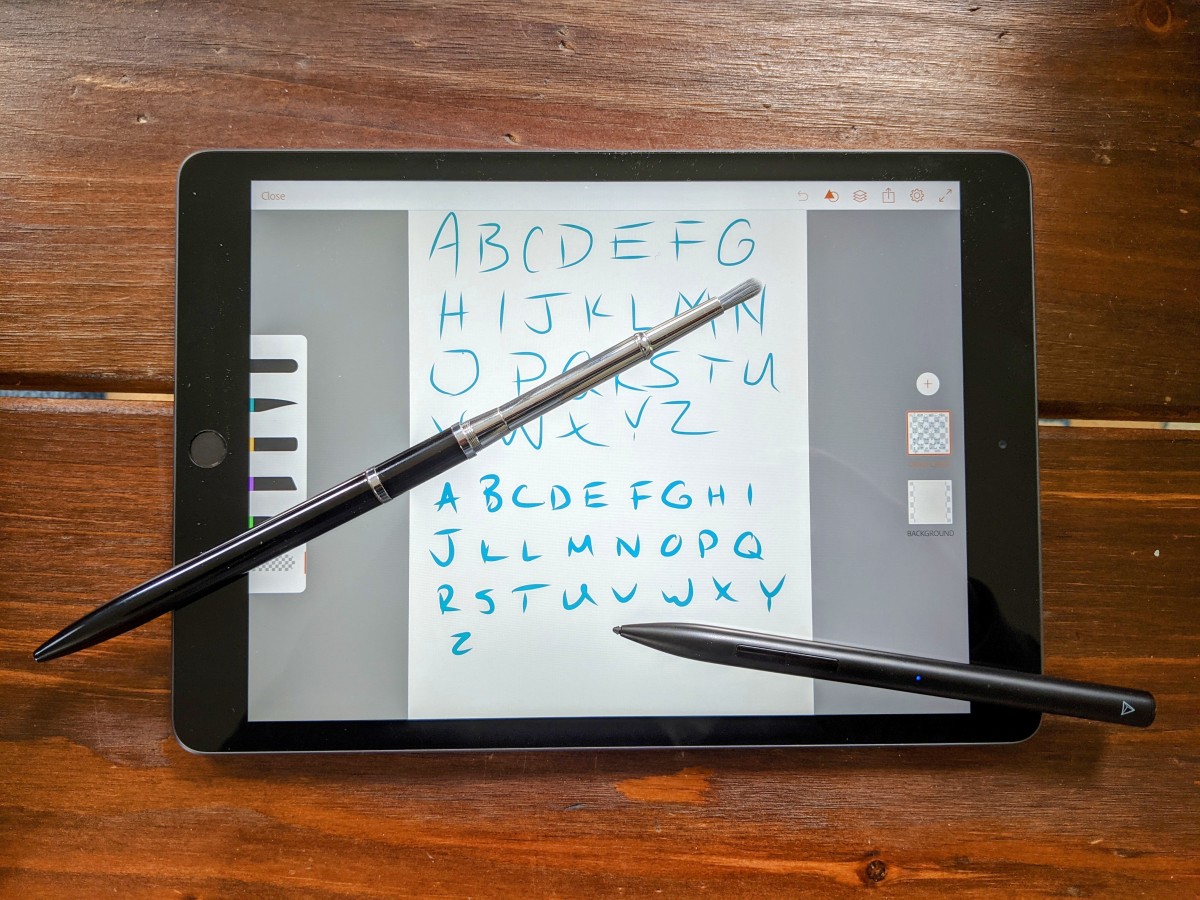 Close
A B C D E F G
H I J K L M N
O P Q R S T U
V W X Y Z
A B C D E F G H I
J K L M N O P Q
R S T U V W X Y
Z
BACKGROUND